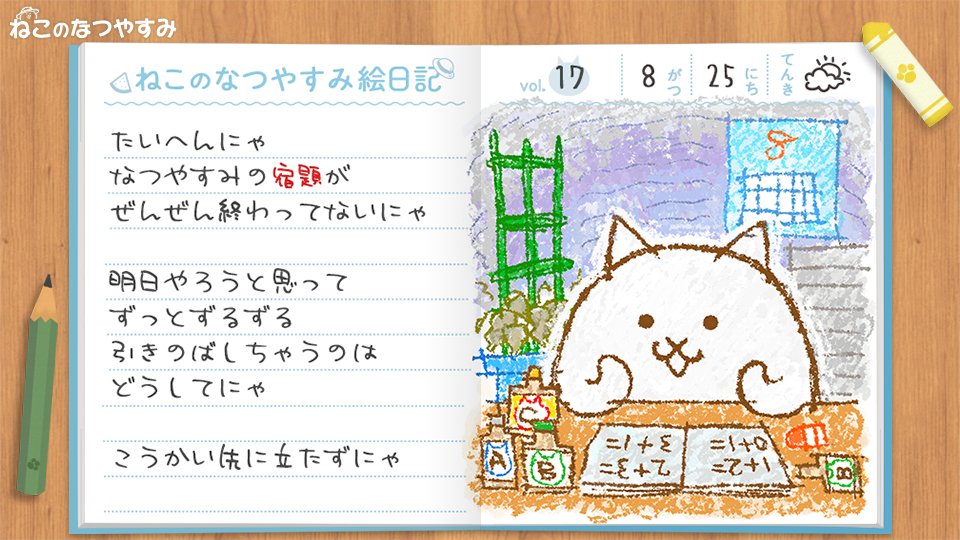 ねこのなつやすみ
ねこのなつやすみ絵日記
vol. 17 8がつ 25にち てんき
たいへんにゃ
なつやすみの宿題が
ぜんぜん終わってないにゃ
明日やろうと思って
ずっとずるずる
引きのばしちゃうのは
どうしてにゃ
こうかい先に立たずにゃ
C
A
B
3+1=
2+3=
0+1=
1+2=
B